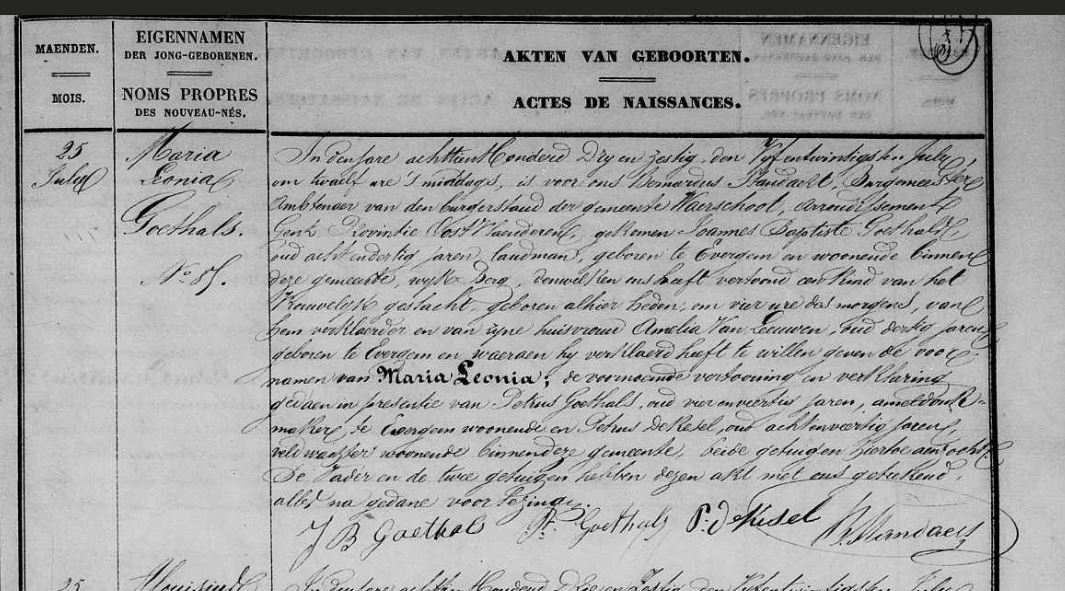 MAENDEN.
MOIS.
EIGENNAMEN
DER JONG-GEBORENEN.
NOMS PROPRES
DES NOUVEAU-NÉS.
AKTEN VAN GEBOORTEN.
ACTES DE NAISSANCES.
25
July
Maria
Leonia
Goethals.
N° 85.
In den jare achttien honderd Dry en zestig, den Vyfentwintigsten July,
om twaelf ure 's middags, is voor ons Bernardus Standaert, Burgemeester
Ambtenaer van den burgerstand der gemeente Waerschoot, Arrondissement
Gent, Provintie Oost Vlaenderen, gekomen Joannes Baptiste Goethals,
oud achtendertig jaren, landman, geboren te Evergem en woonende binnen
deze gemeente, wyk Berg, denwelken ons heeft vertoond een kind van het
Vrouwelyk geslacht, geboren alhier heden, om vier ure des morgens, van
hem verklaerder en van zyne huisvrouw Amelia Van Leeuwen, oud dertig jaren,
geboren te Evergem en waeraen hy verklaerd heeft te willen geven de voor-
namen van Maria Leonia; de voornoemde vertooning en verklaring
gedaen in presentie van Petrus Goethals, oud vierenveertig jaren, ameldonk-
maker, te Evergem woonende en Petrus De Kesel, oud achtenveertig jaren,
veldwachter woonende binnen deze gemeente, beide getuigen hiertoe aenzocht,
De Vader en de twee getuigen hebben dezen akt met ons geteekend,
alles na gedane voorlezing.
J B Goethals Pt. Goethals P: d Kesel B. Standaert
25
In den jare achttien Honderd Drie en Zestig den Vyfentwintigsten July